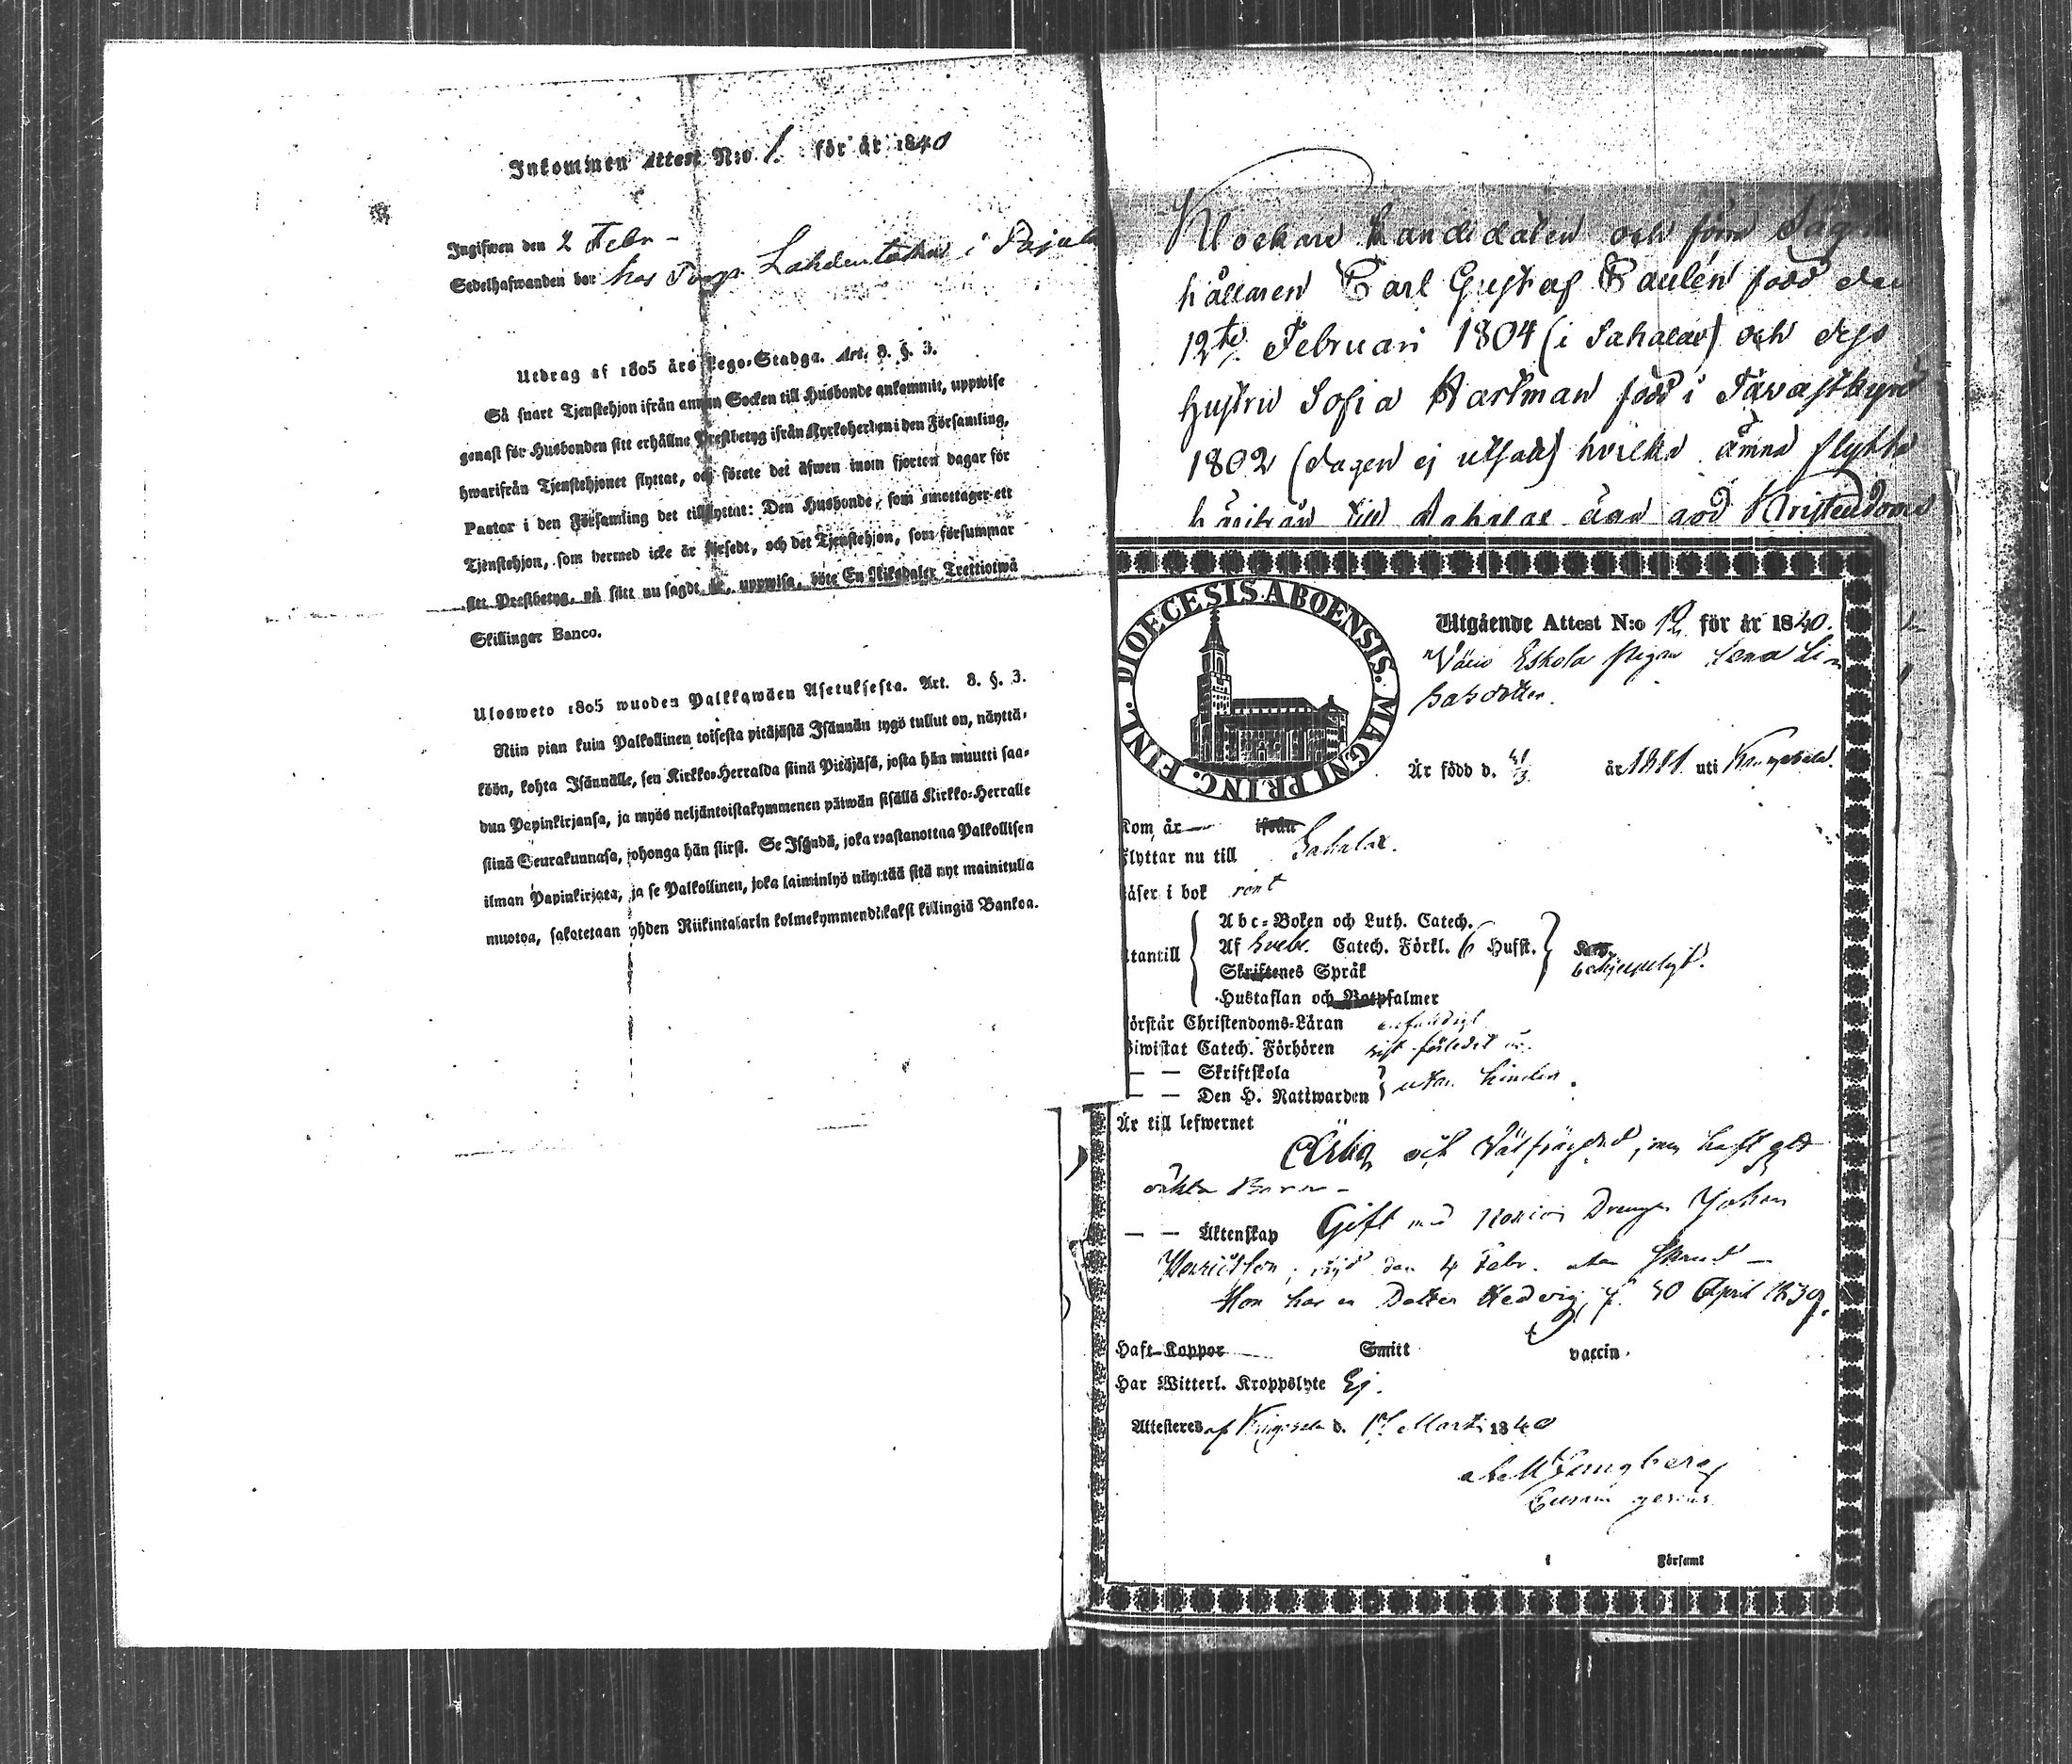 Inkommen Attest N:o 1. för år 1840
Ingifwen den 2 Febr -
Sedelhafwanden bor hos Torp. Lahdentaka i Pajula
Utdrag af 1805 års Lego-Stadga. Art. 8. §. 3.
Så snart Tjenstehjon ifrån annan Socken till Husbonde ankommit, uppwise
genast för Husbonden sitt erhållne Prestbetyg ifrån Kyrkoherden i den Församling,
hwarifrån Tjenstehjonet flyttat, och förete det äfwen inom fjorton dagar för
Pastor i den Församling det tillflyttat: Den Husbonde, som emottager ett
Tjenstehjon, som dermed icke är försedt, och det Tjenstehjon, som försummar
sitt Prestbetyg, på sätt nu sagdt är, uppwisa, böte En Riksdaler Trettiotwå
Skillingar Banco.
Ulosweto 1805 wuoden Palkkawäen Asetuksesta. Art. 8. §. 3.
Niin pian kuin Palkollinen toisesta pitäjästä Isännän tygö tullut on, näyttä-
köön, kohta Isännälle, sen Kirkko-Herralda siinä Pitäjäsä, josta hän muutti saa-
dun Papinkirjansa, ja myös neljäntoistakymmenen päiwän sisällä Kirkko-Herralle
siinä Seurakunnasa, johonga hän siirsi. Se Isändä, joka wastanottaa Palkollisen
ilman Papinkirjata, ja se Palkollinen, joka laiminlyö näyttää sitä nyt mainitulla
muotoa, sakotetaan yhden Riikintalarin kolmekymmendäkaksi killingiä Bankoa.
Klockare Kandidaten och förra
hållaren Carl Gustaf Paulén född den
12te Februari 1804 (i Sahalax) och dess
hustru Sofia Hartman född i Tavastkyrö
1802 (dagen ej utsatt) hvilka ämna flytta
härifrån till Sahalax äga god Kristendoms
DIOECESIS ABOENSIS. MAGNI PRINC. FINL.
Utgående Attest N:o 12 för år 1840.
Eskola pigan Lena Li-
sasdotter.
Är född d. år 1811 uti Kangasala.
Kom år ifrån
Flyttar nu till Sahalax.
Läser i bok rent
Abc-Boken och Luth. Catech.
Utantill Af Sveb. Catech. Förkl. 6 Hufst.
Skriftenes Språk behjelpligt.
Hustaflan och Botpsalmer
Förstår Christendoms-Läran enfaldigt
Biwistat Catech. Förhören sist förledit år.
— — Skriftskola
— — Den H. Nattwarden utan hinder.
Är till lefwernet
Ärlig och Välfrägdad, men haft
oäkta Barn -
— — Äktenskap Gift med Drengen Johan
den 4 Febr.
Hon har en Dotter Hedvig, f. 30 April 1839.
Haft Koppor Smitt vaccin.
Har Witterl. Kroppslyte Ej.
Attesteras af Kangasala d. 12 Martii 1840
Ljungberg
i Församl